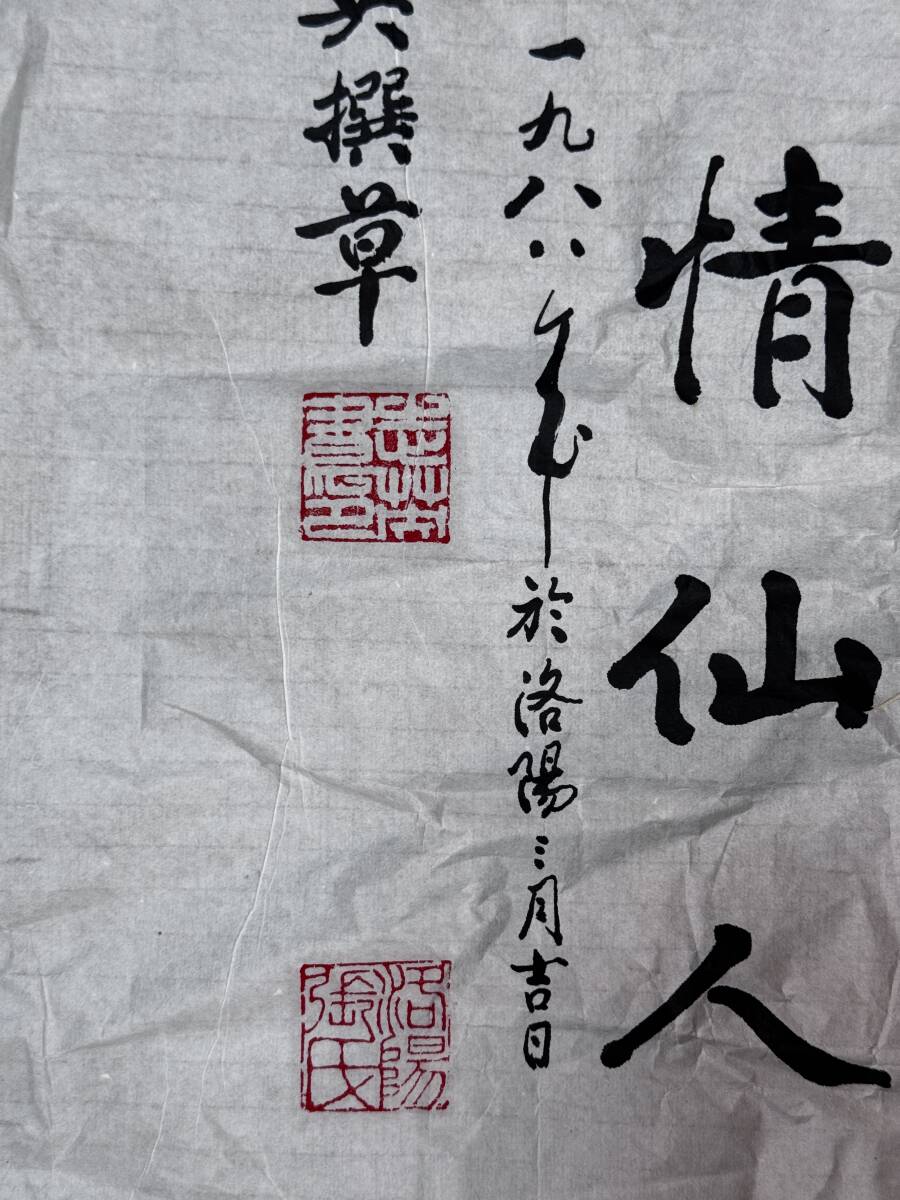 情仙人
一九八八年於洛陽三月吉日
撰草
洛陽張氏